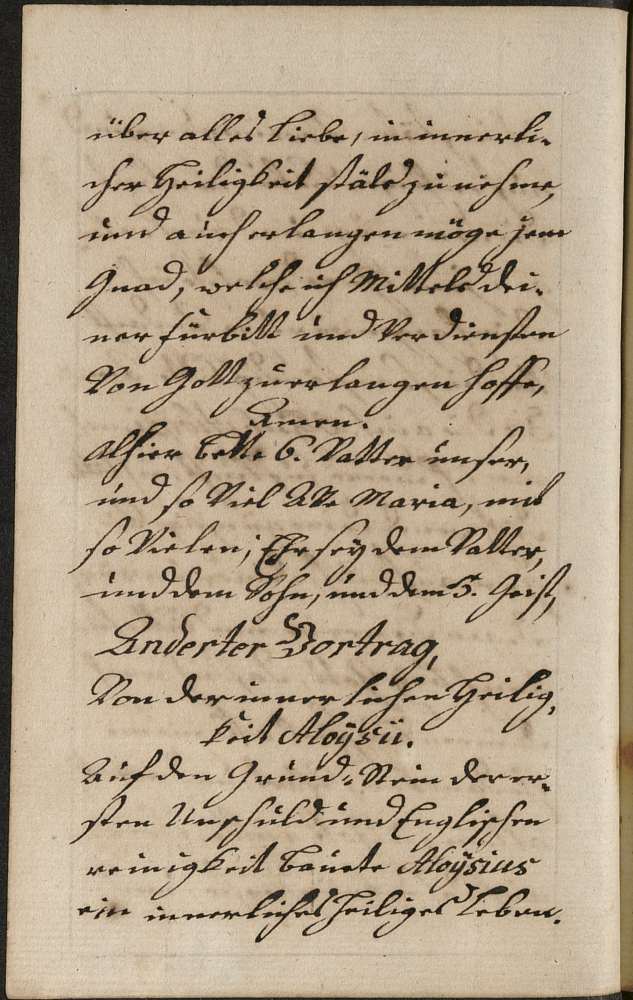 über alles Liebe, in innerli-
cher Heiligkeit stäts zu nehme,
und auch erlangen möge jene
Gnad, welche ich Mittels dei-
ner fürbitt und Verdiensten
Von Gott zu erlangen hoffe,
Amen.
Alhier bette 6. Vatter unser,
und so Viel Ave Maria, mit
so Vielen; Ehr sey dem Vatter,
und dem Sohn, und dem H. Geist,
Anderter Vortrag,
Von der innerlichen Heilig,
keit Aloÿsii.
Auf den Grund-Stein der er-
sten Unschuld und Englischen
reinigkeit bauete Aloÿsius
ein innerliches heiliges Leben.